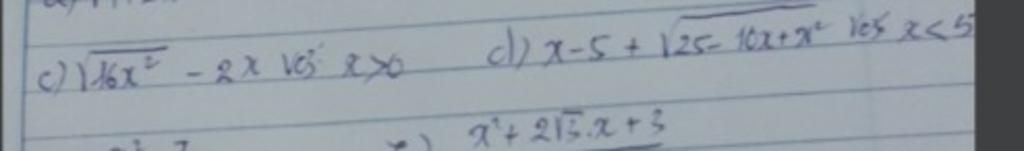 c) √16x² - 2x với x>0 d) x-5 + √25-10x+x² với x<5
x²+ 2√3.x + 3